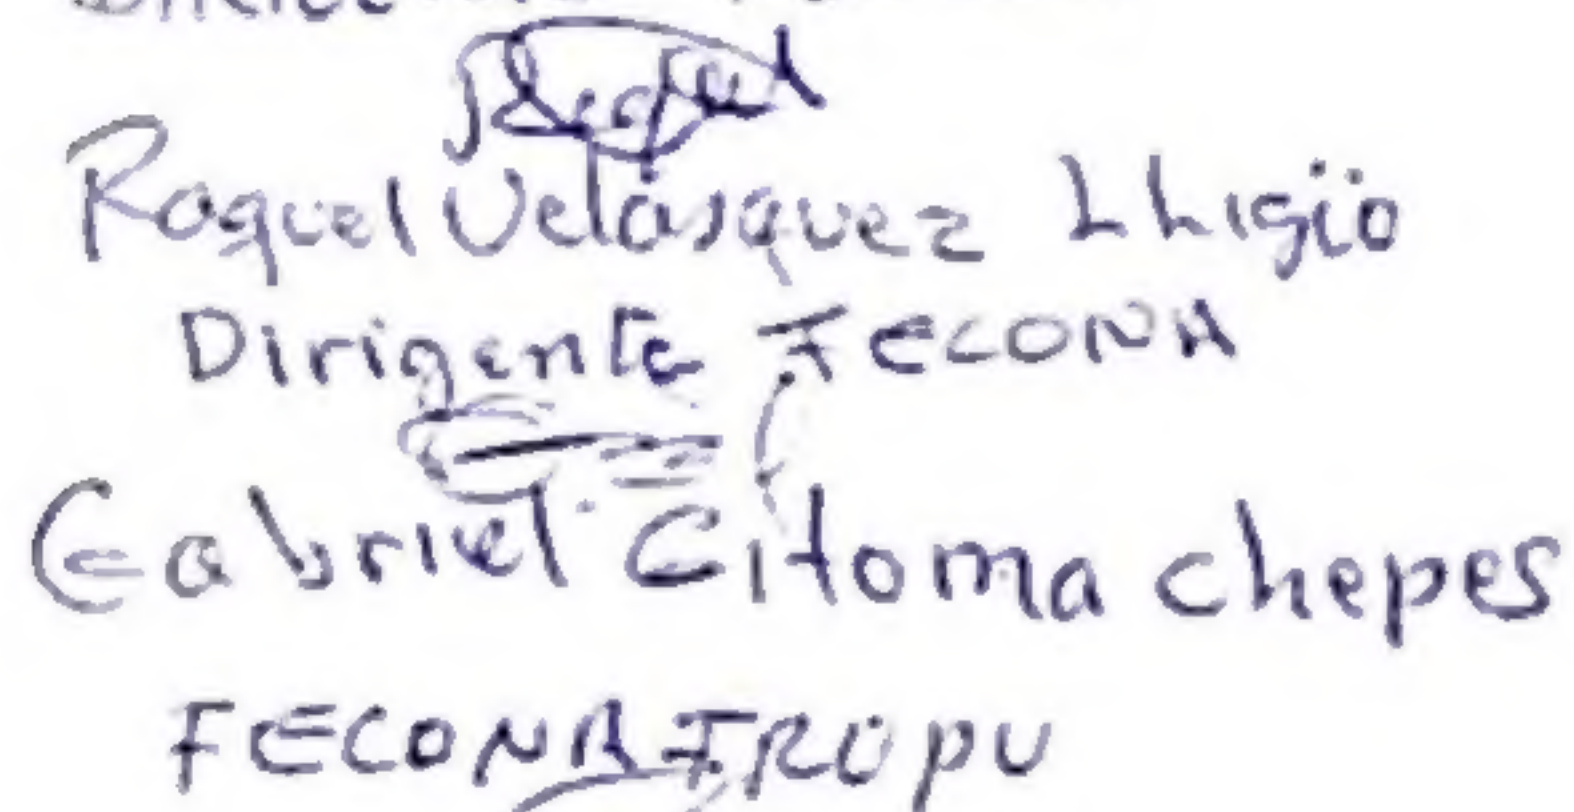 Raquel Velásquez Lligio
Dirigente FECONA
Gabriel Citoma chepes
FECONAFROPU